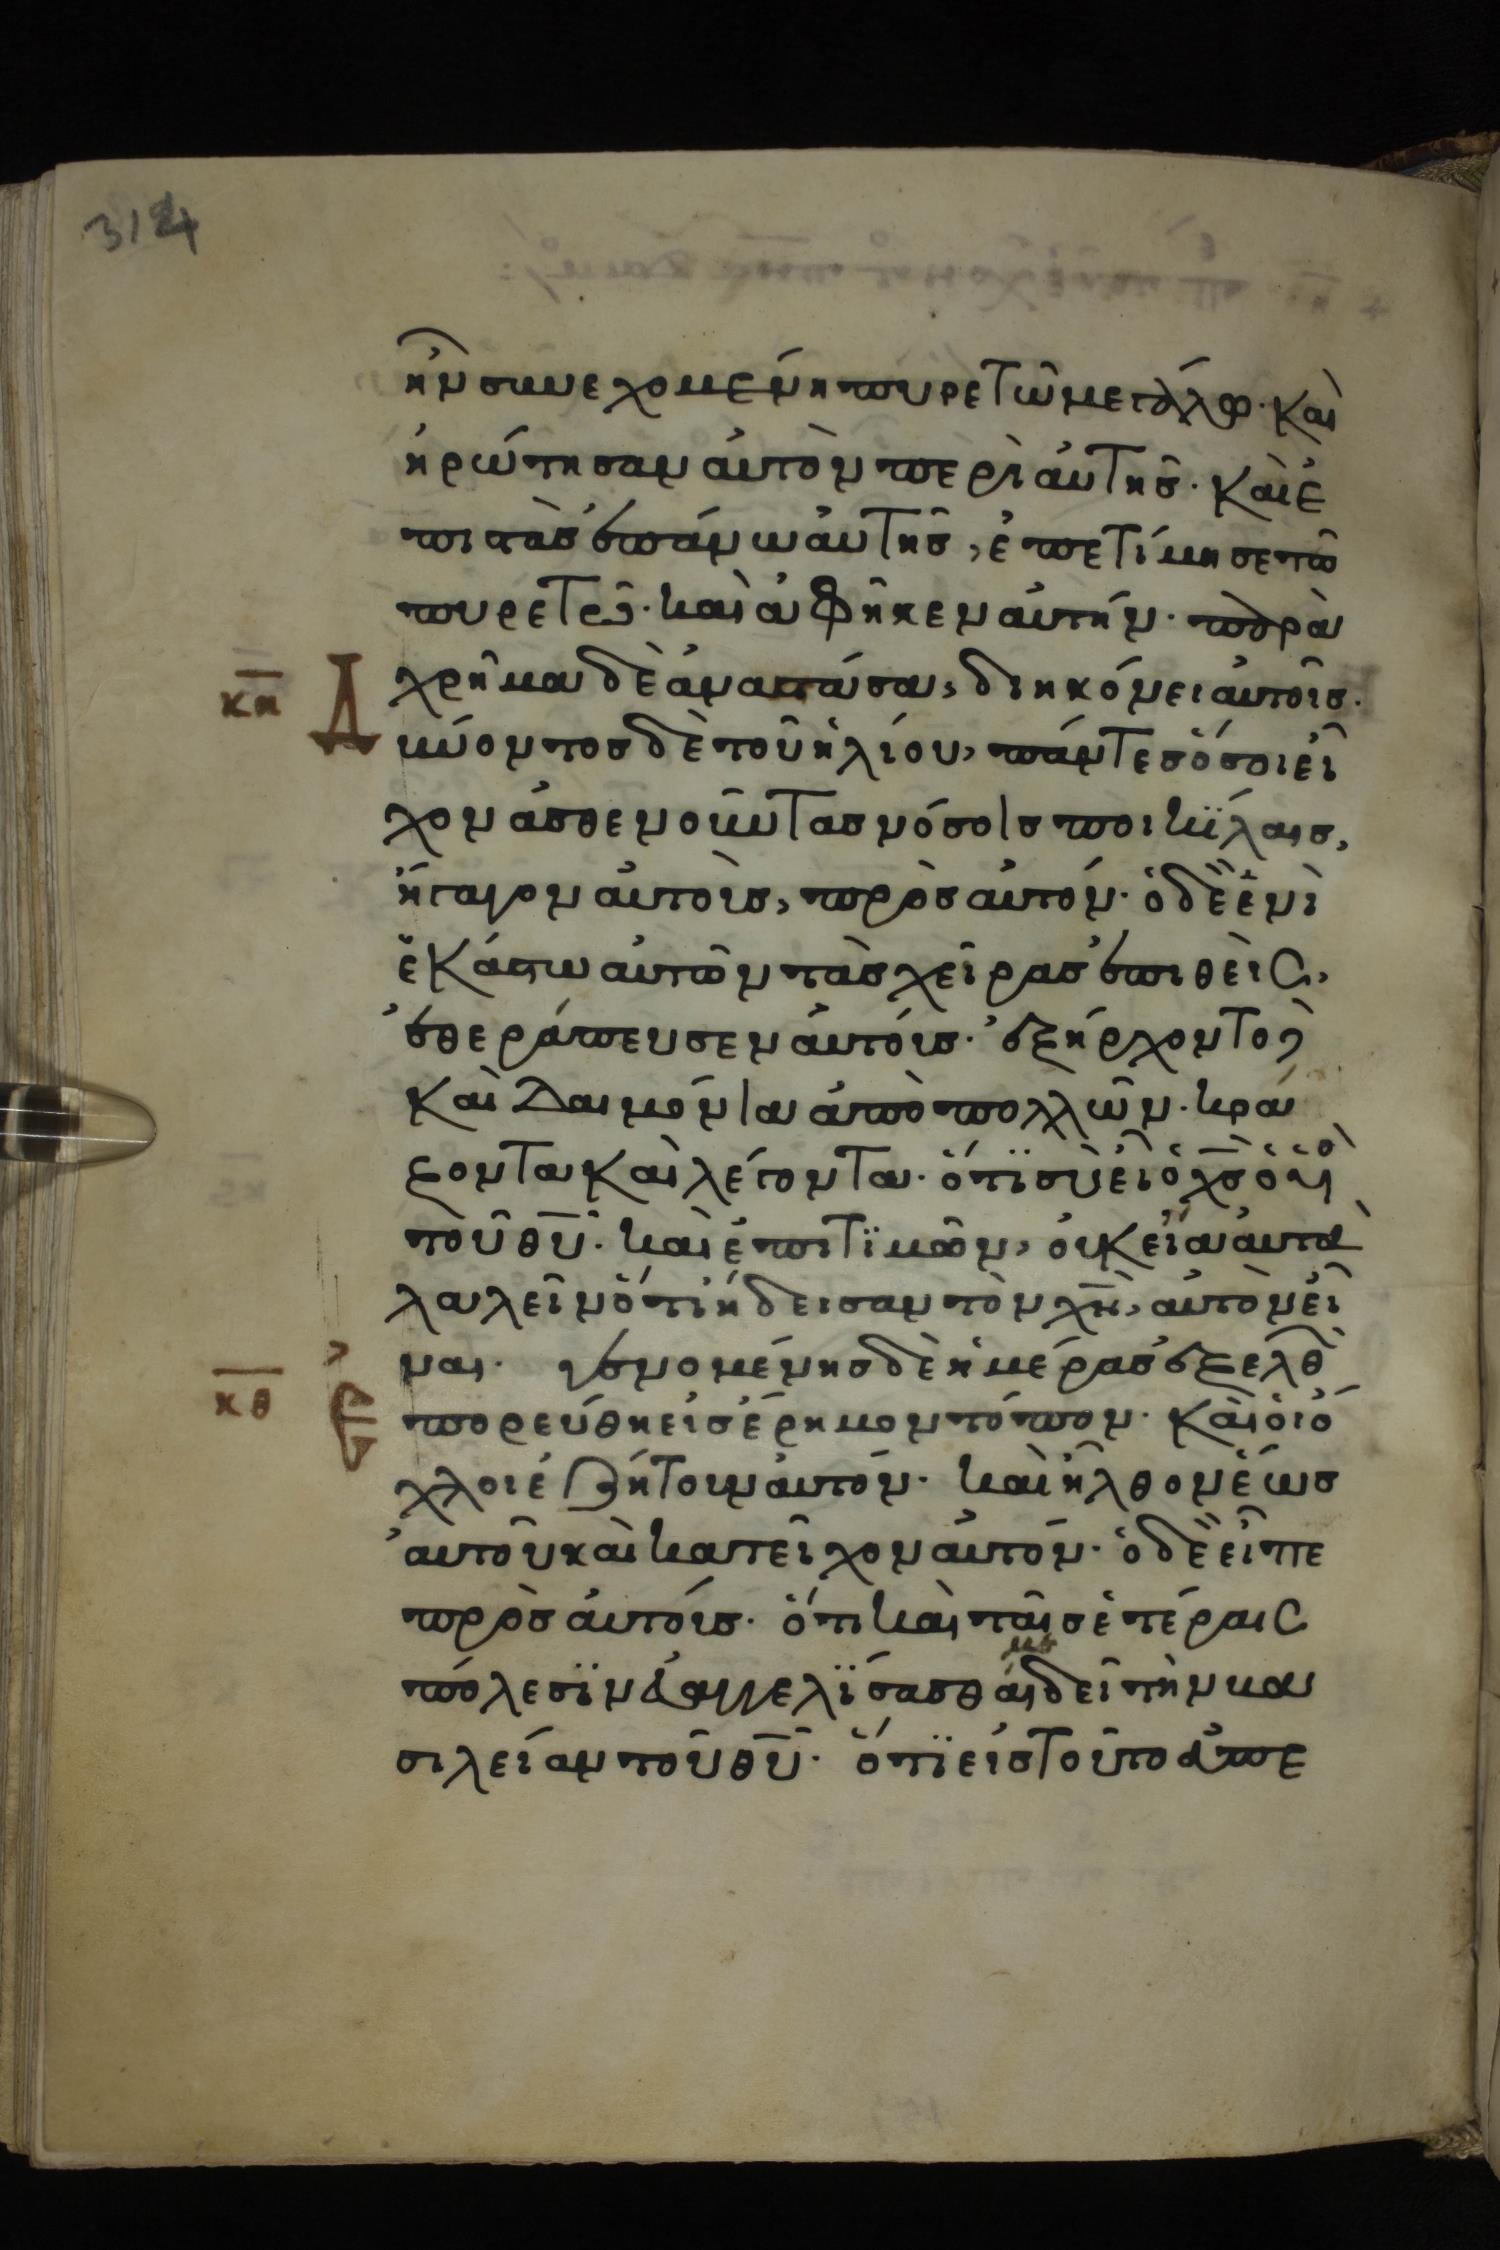 312
ἦν συνεχομένη πυρετῷ μεγάλῳ· καὶ
ἠρώτησαν αὐτὸν περὶ αὐτῆς· καὶ ἐ
πιστὰς ἐπάνω αὐτῆς, ἐπετίμησε τῶ
πυρετῷ· καὶ ἀφῆκεν αὐτήν· παρα
κη χρῆμα δὲ ἀναστάσα, διηκόνει αὐτοῖς·
Δ ύνοντος δὲ τοῦ ἡλίου, πάντες ὅσοι εἶ
χον ἀσθενοῦντας νόσοις ποικίλαις,
ἤγαγον αὐτοὺς, πρὸς αὐτόν· ὁ δὲ ἑνὶ
ἑκάστω αὐτῶν τὰς χεῖρας ἐπιθεὶς,
ἐθεράπευσεν αὐτούς· ἐξήρχοντο
καὶ δαιμόνια ἀπὸ πολλῶν· κρά
ζοντα καὶ λέγοντα· ὅτι σὺ εἶ ὁ χς ὁ υς
τοῦ θυ· καὶ ἐπιτιμῶν, οὐκ εἴα αὐτὰ
λαλεῖν ὅτι ἤδεισαν τὸν χν, αὐτὸν εἶ
ναι· γενομένης δὲ ἡμέρας ἐξελθὼ
κθ ἐπορεύθη εἰς ἔρημον τόπον· καὶ οἱ ὄ
χλοι ἐζήτουν αὐτόν· καὶ ἦλθον ἕως
αὐτοῦ καὶ κατεῖχον αὐτόν· ὁ δὲ εἶπε
πρὸς αὐτούς· ὅτι καὶ ταῖς ἑτέραις
πόλεσιν εὐαγγελίσασθαί με δεῖ τὴν βα
σιλείαν τοῦ θυ· ὅτι εἰς τοῦτο ἀπε